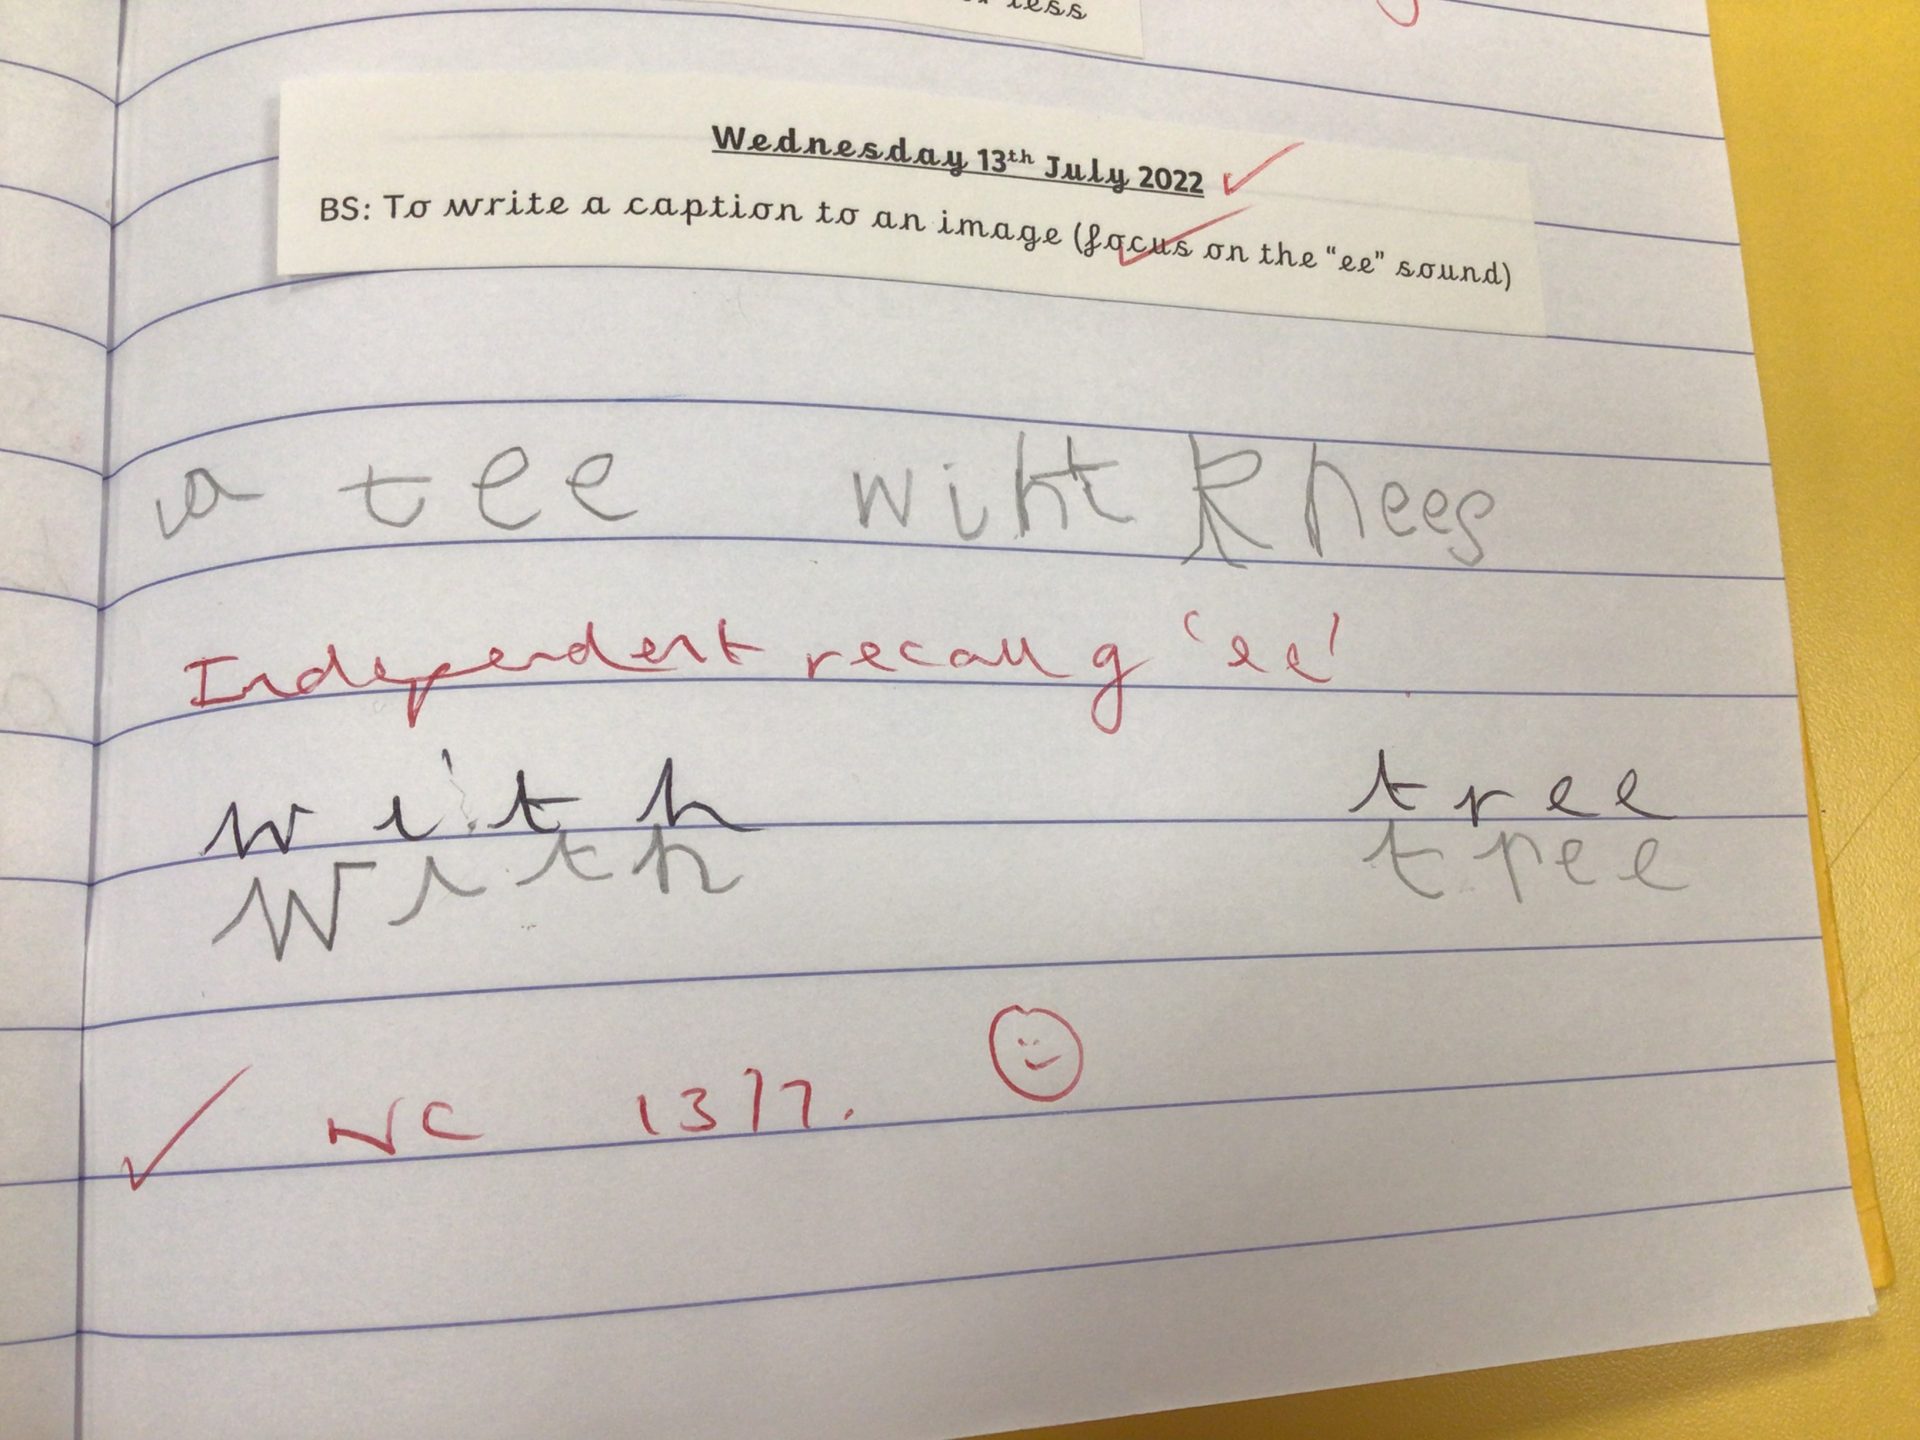 less
Wednesday 13th July 2022
BS: To write a caption to an image (focus on the "ee" sound)
a tee wiht knees
Independent recall of 'ee'.
with tree
with tree
NC 13/7.